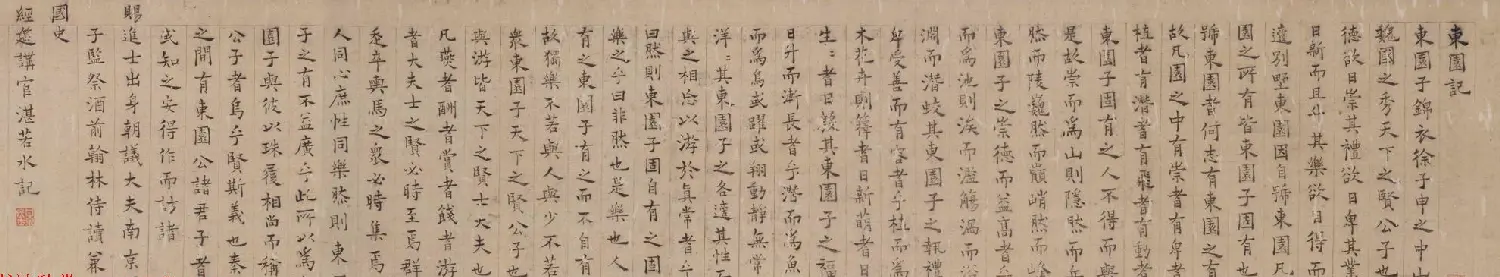 東園記
東園子錦衣徐子申之中山
魏國之秀天下之賢公子也
德欲日崇其禮欲日卑其業
日新而且斗其樂欲日得而
遠別墅東園因自號東園凡
國之所有皆東園子固有也
號東園者何志有東園之有
故凡園之中有崇者有卑者
植者有潛者有飛者有動者
東園子固有之人不得而與
是故崇而為山則隱然而丘
然而陵巍然而巔峭然而峰
東園子之崇德而益高者乎
而為池則渙而濫觴淵而淵
淵而潛蛟其東園子之執禮
卑受善而有容者乎植而為
木花卉則籜者日新萌者日
生:者日發其東園子之福
日升而漸長者乎潛而為魚
而為鳥或躍或翔動靜無常
洋:其東園子之各遠其性
與之相忘以游於真常者乎
曰然則東園子固自有之園
樂之乎曰非然也是樂也人
有之東園子有之而不自有
故獨樂不若與人與少不若
衆東園子天下之賢公子也
與游皆天下之賢士大夫也
凡燕者酬者賞者餞者游
者大夫士之賢必時至焉群
乘卒輿馬之衆必時集焉
人同心庶性同樂然則東
子之有不益廣乎此所以為
園子與彼以珠履相尚而稱
公子者烏乎賢斯義也秦
之間有東園公諸君子者
或知之安得作而訪諸
賜
進士出身朝議大夫南京
子監祭酒前翰林侍讀兼
國史
經筵講官湛若水記